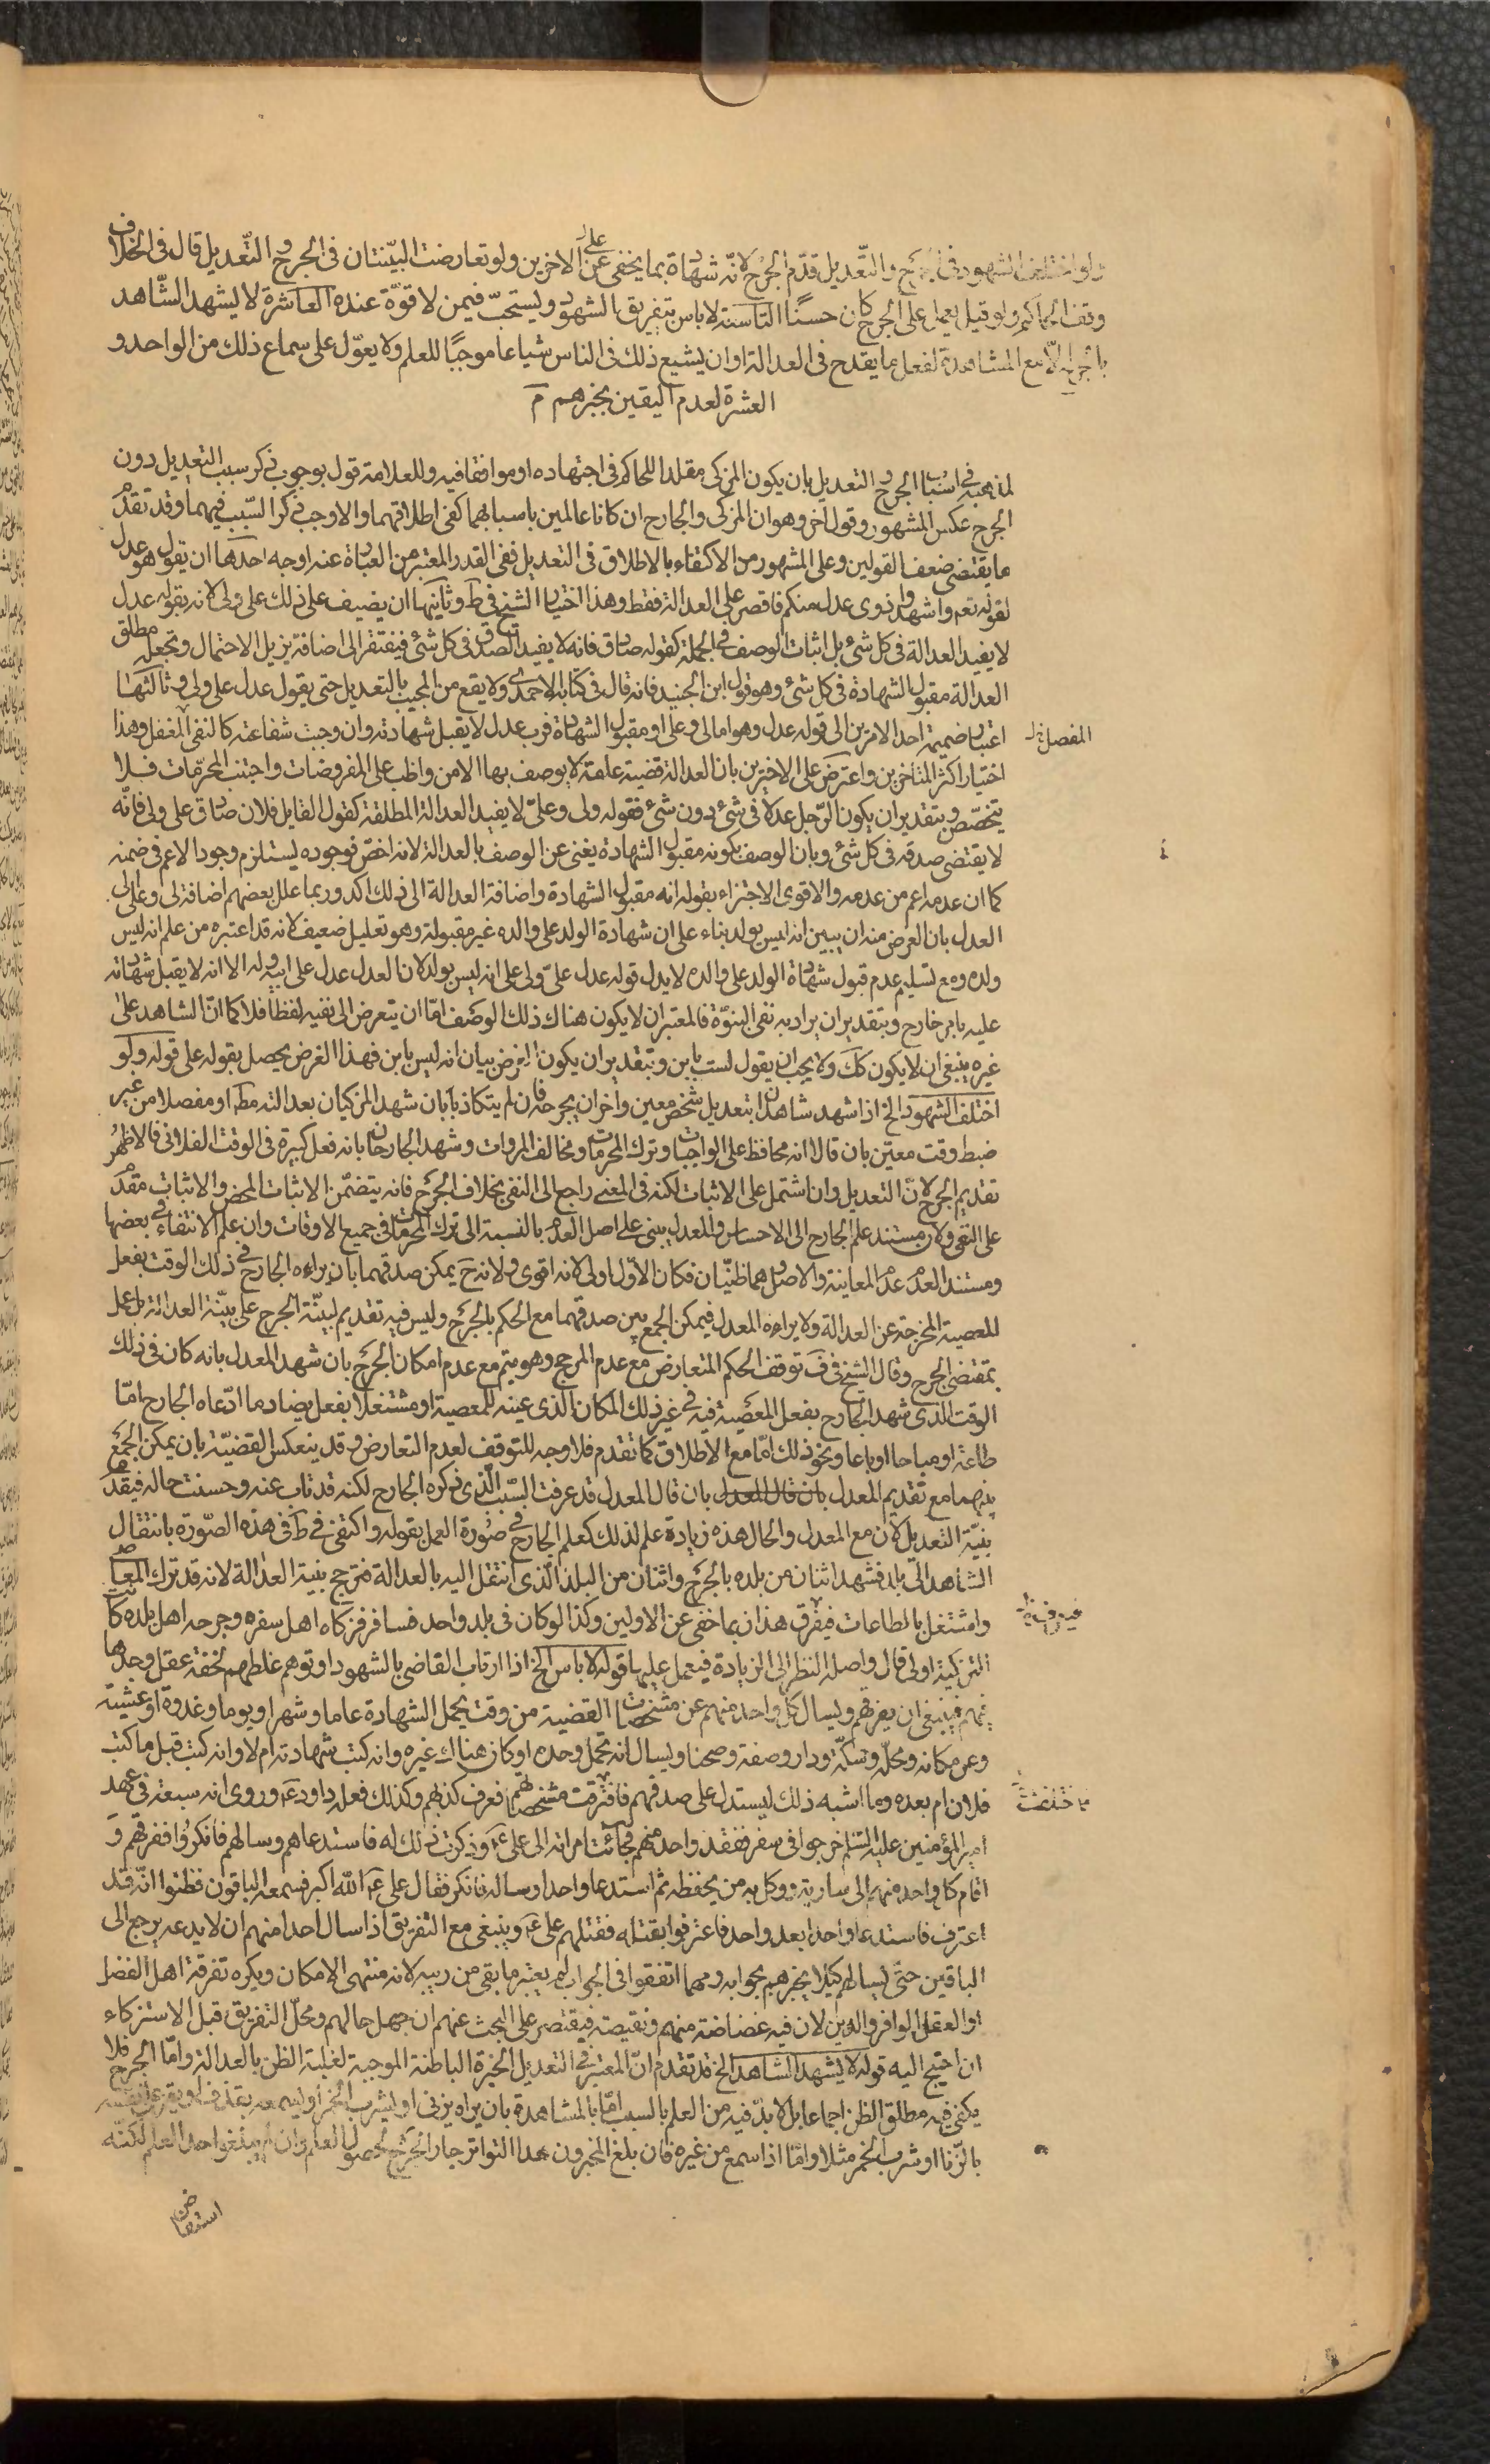 ولو اختلف الشهود فى الجرح والتّعديل قدّم الجرح لانّه شهادة بما يخفى عن على الاخرين ولو تعارضت البيّنتان فى الجرح والتّعديل قال فى الخلاف
وقف الحاكم ولو قيل يعمل على الجرح كان حسنًا التاسعة لا باس بتفريق الشهود ويستحبّ فيمن لا قوّة عنده العاشرة لا يشهد الشّاهد
بالجرح الّا مع المشاهدة لفعل ما يقدح فى العدالة او ان يشيع ذلك فى الناس شياعا موجبًا للعلم ولا يعوّل على سماع ذلك من الواحد و
العشرة لعدم اليقين بخبرهم م
لمذهبه فى اسباب الجرح والتعديل بان يكون المزكى مقلدا للحاكم فى اجتهاده او موافقا فيه وللعلامة قول بوجوب ذكر سبب التعديل دون
الجرح عكس المشهور وقول اخر وهو ان المزكى والجارح ان كانا عالمين باسبابهما كفى اطلاقهما والا وجب ذكر السّبب فيهما وقد تقدم
ما يقتضى ضعف القولين وعلى المشهور من الاكتفاء بالاطلاق فى التعديل ففى القدر المعتبر من العبارة عنه اوجه احدها ان يقول هو عدل
لقوله تعم واشهدوا ذوى عدل منكم فاقصر على العدالة فقط وهذا اختيار الشيخ فى ط وثانيها ان يضيف على ذلك على ولى لانه بقوله عدل
لا يفيد العدالة فى كل شئ بل اثبات الوصف فى الجملة كقوله صادق فانه لا يفيد الصدق فى كل شئ فيفتقر الى اضافة يزيل الاحتمال وتجعله مطلق
العدالة مقبول الشهادة فى كل شئ وهو قول ابن الجنيد فانه قال فى كتابه الاحمدى ولا يقع من المجيب بالتعديل حتى يقول عدل على ولى وثالثها
اعتبار ضميمة احد الامرين الى قوله عدل وهو اما لى وعلى او مقبول الشهادة فرب عدل لا يقبل شهادته وان وجبت شفاعته كالنفى المغفل وهذا
المفصل
اختيار اكثر المتاخرين واعترض على الاخيرين بان العدالة قضية عامة لا يوصف بها الا من واظب على المفروضات واجتنب المحرّمات فلا
يتخصّص وبتقدير ان يكون الرّجل عدلا فى شئ دون شئ فقوله ولى وعلىّ لا يفيد العدالة المطلقة كقول القايل فلان صادق على ولى فانّه
لا يقتضى صدقه فى كل شئ وبان الوصف بكونه مقبول الشهادة يغنى عن الوصف بالعدالة لانه اخص فوجوده يستلزم وجود الاعم فى ضمنه
كما ان عدمه اعم من عدمه والاقوى الاجتزاء بقوله انه مقبول الشهادة واضافة العدالة الى ذلك اكد وربما علل بعضهم اضافة لى وعلى الى
العدل بان الغرض منه ان يبين انه ليس بولد بناء على ان شهادة الولد على والده غير مقبولة وهو تعليل ضعيف لانه قد اعتبره من علم انه ليس
ولده ومع تسليم عدم قبول شهادة الولد على والده لا يدل قوله عدل علىّ ولى على انه ليس بولد لان العدل عدل على ابيه وله الا انه لا يقبل شهادته
عليه بامر خارج وبتقدير ان يراد به نفى البنوّة فالمعتبر ان لا يكون هناك ذلك الوصف امّا ان يتعرض الى نفيه لفظا فلا كما انّ الشاهد على
غيره ينبغى ان لا يكون كك ولا يجب ان يقول لست بابن وبتقدير ان يكون الغرض بيان انه ليس بابن فهذا الغرض يحصل بقوله على قوله ولو
اختلف الشهود الخ اذا شهد شاهدان بتعديل شخص معين واخران بجرحه فان لم يتكاذبا بان شهد المزكيان بعدالته مطلقا او مفصلا من غير
ضبط وقت معين بان قالا انه محافظ على الواجبات وترك المحرمات ومخالف المروات وشهد الجارحان بانه فعل كبيرة فى الوقت الفلانى فالاظهر
تقديم الجرح لانّ التعديل وان اشتمل على الاثبات لكنه فى المعنى راجع الى النفى بخلاف الجرح فانه يتضمّن الاثبات المحض والاثبات مقدم
على النفى ولان مستند علم الجارح الى الاحساس والمعدل يبنى على اصل العدم بالنسبة الى ترك المحرمات فى جميع الاوقات وان علم الانتفاء فى بعضها
ومستند العدم عدم المعاينة والاصل وهما ظنّيان فكان الاوّل اولى لانه اقوى ولانه ح يمكن صدقهما بان يراه الجارح فى ذلك الوقت بفعل
للمعصية المخرجة عن العدالة ولا يراه المعدل فيمكن الجمع بين صدقهما مع الحكم بالجرح وليس فيه تقديم لبيّنة الجرح على بيّنة العدالة بل عمل
بمقتضى الجرح وقال الشيخ فى ف توقف الحكم المتعارض مع عدم المرجح وهو يتم مع عدم امكان الجرح بان شهد المعدل بانه كان فى ذلك
الوقت الذى شهد الجارح بفعل المعصية فيه فى غير ذلك المكان الذى عينه للمعصية او مشتغلا بفعل يضاد ما ادّعاه الجارح امّا
طاعة او مباحا او نايما ونحو ذلك امّا مع الاطلاق كما تقدم فلا وجه للتوقف لعدم التعارض وقد ينعكس القضيّة بان يمكن الجمع
بينهما مع تقديم المعدل بان قال المعدل بان قال المعدل قد عرفت السّبب الّذى ذكره الجارح لكنه قد تاب عنه وحسنت حاله فيقدم
بنيّة التعديل لان مع المعدل والحال هذه زيادة علم لذلك كعلم الجارح فى صورة العمل بقوله واكتفى فى ط فى هذه الصّورة بانتقال
الشاهد الى بلد فشهد اثنان من بلده بالجرح واثنان من البلد الّذى انتقل اليه بالعدالة فترجح بنية العدالة لانه قد ترك المعاصى
واشتغل بالطاعات فيفرق هذان بما خفى عن الاولين وكذا لو كان فى بلد واحد فسافر فزكاه اهل سفره وجرحه اهل بلده كانت
فيعرف
التزكية اولى قال واصله النظر الى الزيادة فيعمل عليها قوله لا باس الخ اذا ارتاب القاضى بالشهود او توهم غلطهم لخفة عقل وجدها
فيهم فينبغى ان يفرقهم ويسال كل واحد منهم عن مشخصات القضية من وقت تحمل الشهادة عاما وشهرا ويوما وغدوة او عشية
وعن مكانه ومحلّه وسكّة ودار وصفة وصحنا ويسال انه تحمل وحده او كان هناك غيره وانه كتب شهادته ام لا وانه كتب قبل ما كتب
فلان ام بعده وما اشبه ذلك ليستدل على صدقهم فافترقت مشخصاتهم فعرف كذبهم وكذلك فعله داود ع وروى انه سبعة فى عهد
فاختلفت
امير المؤمنين عليه السّلم خرجوا فى سفر ففقد واحد منهم فجائت امراته الى على ع وذكرت ذلك له فاستدعاهم وسالهم فانكروا ففرقهم و
اقام كل واحد منهم الى سارية ووكل به من يحفظه ثم استدعا واحدا وساله فانكر فقال على ع الله اكبر فسمعه الباقون فظنوا انّه قد
اعترف فاستدعا واحدا بعد واحد فاعترفوا بقتله فقتلهم على ع وينبغى مع التفريق اذا سال احدا منهم ان لا يدعه يرجع الى
الباقين حتّى يسالهم كيلا يخبرهم بجوابه ومهما اتفقوا فى الجواب لم يعتبر ما بقى من ريبه لانه منتهى الامكان ويكره تفرقة اهل الفضل
او العقل الوافر والدين لان فيه غضاضة منهم ونقيصة فيقتصر على البحث عنهم ان جهل حالهم ومحلّ التفريق قبل الاستزكاء
ان احتيج اليه قوله لا يشهد الشاهد الخ قد تقدم انّ المعتبر فى التعديل الخبرة الباطنة الموجبة لغلبة الظن بالعدالة وامّا الجرح فلا
يكفى فيه مطلق الظن اجماعا بل لا بدّ فيه من العلم بالسبب امّا بالمشاهدة بان يراه يزنى او يشرب الخمر او ليسمعه يقذف او يقر على نفسه
بالزّنا او شرب الخمر مثلا وامّا اذا سمع من غيره فان بلغ المخبرون حد التواتر جاز الجرح لحصول العلم وان لم يبلغوا حد العلم لكنّه
استفاض